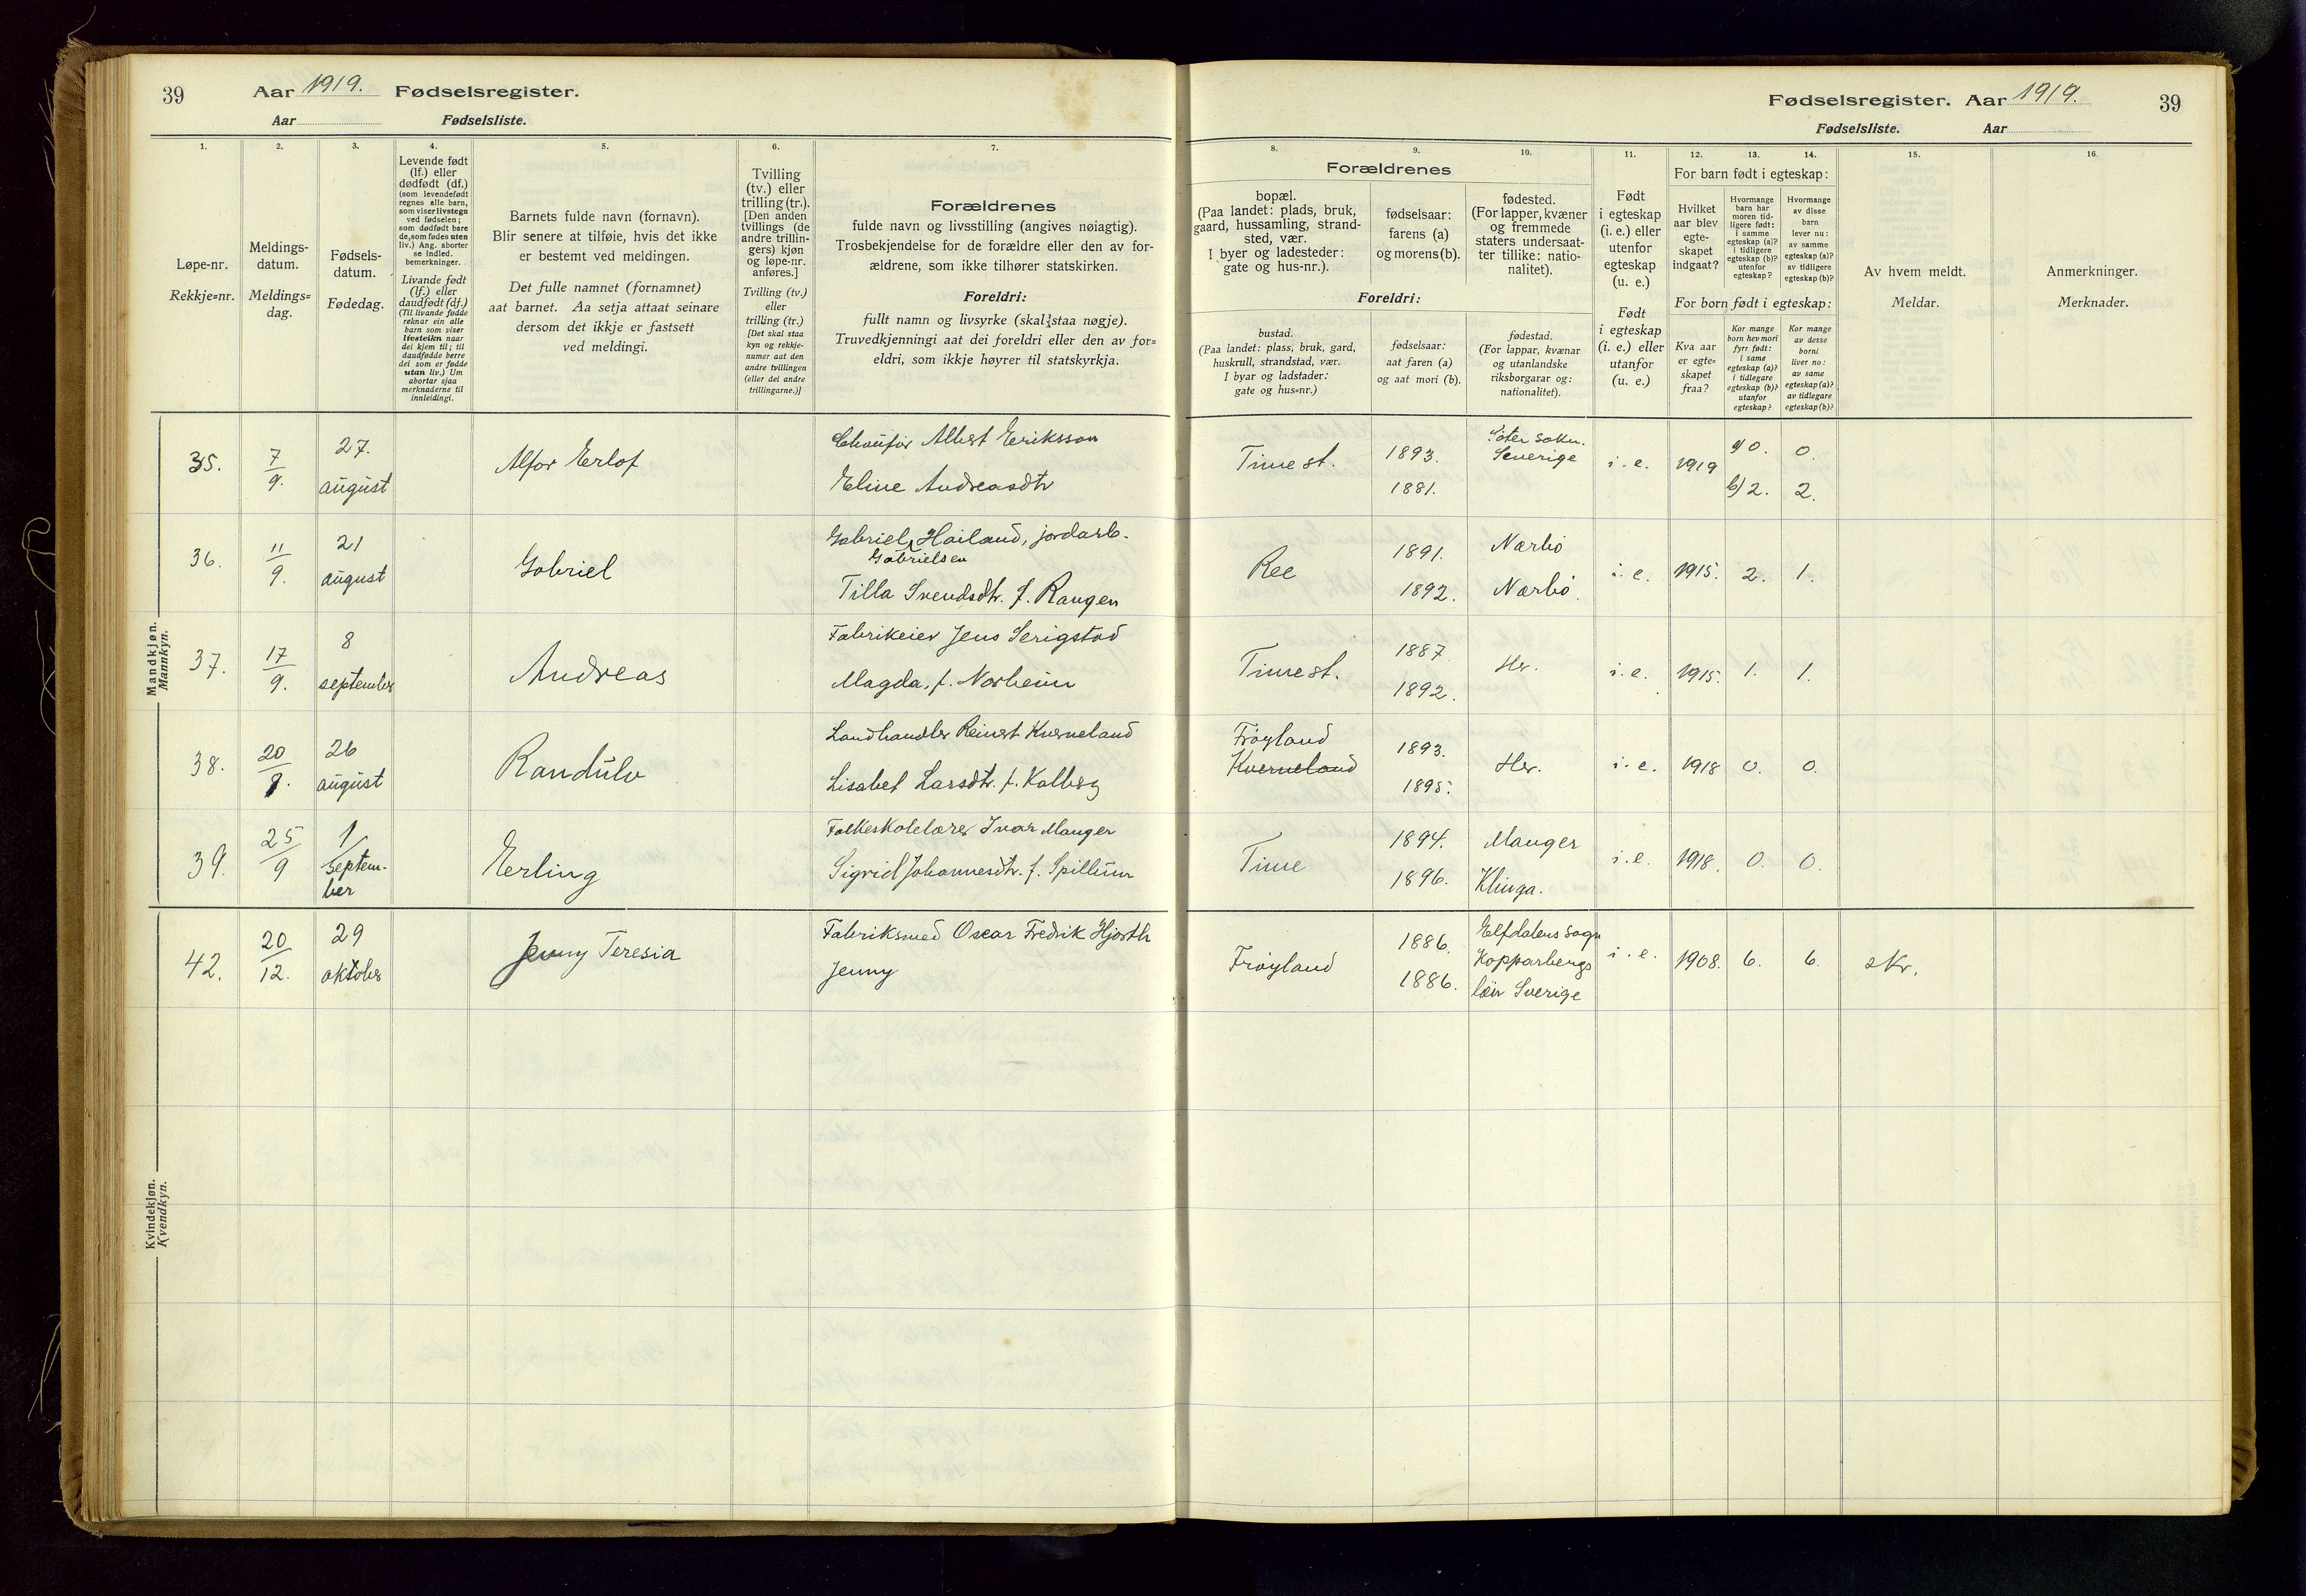 39 Aar 1919. Fødselsregister.
Aar Fødselsliste.
Fødselsregister. Aar 1919. 39
Fødselsliste. Aar
1. 2. 3. 4. 5. 6. 7.
Løpe-nr.
Rekkje=nr.
Meldings-
datum.
Meldings=
dag.
Fødsels-
datum.
Fødedag.
Levende født
(lf.) eller
dødfødt (df.)
(som levendefødt
regnes alle barn,
som viser livstegn
ved fødselen;
som dødfødt bare
de, som fødes uten
liv.) Ang. aborter
se indled.
bemerkninger.
Livande født
(lf.) eller
daudfødt (df.)
(Til livande fødde
reknar ein alle
barn som viser
livsteikn naar
dei kjem til; til
daudfødde berre
dei som er fødde
utan liv.) Um
abortar sjaa
merknaderne til
innleidingi.
Barnets fulde navn (fornavn).
Blir senere at tilføie, hvis det ikke
er bestemt ved meldingen.
Det fulle namnet (fornamnet)
aat barnet. Aa setja attaat seinare
dersom det ikkje er fastsett
ved meldingi.
Tvilling
(tv.) eller
trilling (tr.).
[Den anden
tvillings (de
andre trillin-
gers) kjøn
og løpe-nr.
anføres.]
Tvilling (tv.)
eller
trilling (tr.)
[Det skal staa
kyn og rekkje-
numer aat den
andre tvillingen
(eller dei andre
trillingarne.)]
Forældrenes
fulde navn og livsstilling (angives nøiagtig).
Trosbekjendelse for de forældre eller den av for-
ældrene, som ikke tilhører statskirken.
Foreldri:
fullt namn og livsyrke (skal staa nøgje).
Truvedkjenningi aat dei foreldri eller den av for=
eldri, som ikkje høyrer til statskyrkja.
8. 9. 10. 11. 12. 13. 14. 15. 16.
Forældrenes
bopæl.
(Paa landet: plads, bruk,
gaard, hussamling, strand-
sted, vær.
I byer og ladesteder:
gate og hus-nr.).
fødselsaar:
farens (a)
og morens (b).
fødested.
(For lapper, kvæner
og fremmede
staters undersaat-
ter tillike: natio-
nalitet).
Foreldri:
bustad.
(Paa landet: plass, bruk, gard,
huskrull, strandstad, vær.
I byar og ladstader:
gate og hus=nr.)
fødselsaar:
aat faren (a)
og aat mori (b).
fødestad.
(For lappar, kvænar
og utanlandske
riksborgarar og:
nationalitet).
Født
i egteskap
(i. e.) eller
utenfor
egteskap
(u. e.)
Født
i egteskap
(i. e.) eller
utanfor
(u. e.)
For barn født i egteskap:
Hvilket
aar blev
egte-
skapet
indgaat?
Hvormange
barn har
moren tid-
ligere født:
i samme
egteskap (a)?
i tidligere
egteskap (b)?
utenfor
egteskap?
Hvormange
av disse
barn
lever nu:
av samme
egteskap (a)?
av tidligere
egteskap (b)?
For born født i egteskap:
Kva aar
er egte=
skapet
fraa?
Kor mange
born hev mori
fyrr født:
i same
egteskap (a)?
i tidlegare
egteskap (b)?
utanfor
egteskap?
Kor mange
av desse
borni
liver no:
av same
egteskap (a)?
av tidlegare
egteskap (b)?
Av hvem meldt.
Meldar.
Anmerkninger.
Merknader.
Mandkjøn.
Mannkyn.
35. 7/9. 27. august Alfor Erlof
Chauför Albert Eriksson
Eline Andreasdtr
Time st. 1893. 1881. sokn. Sverige i. e. 1919 a) 0. 0.
b) 2. 2.
36. 11/9. 21 august Gabriel
Gabriel Gabrielsen Hailand, jordarb.
Tilla Svendsdtr. f. Raugen
Ree 1891. Nærbø
1892. Nærbø. i. e. 1915. 2. 1.
37. 17/9. 8 september Andreas
Fabrikeier Jens Serigstad
Magda, f. Norheim
Time st. 1887 1892. Her. i. e. 1915. 1. 1.
38. 20/9. 26 august Randulv
Landhandler Reinert Kverneland
Lisabet Larsdtr. f. Kalberg
Frøyland
Kverneland 1893. 1895. Her. i. e. 1918 0. 0.
39. 25/9 1/ septem-
ber Erling
Folkeskolelærer Ivar Manger
Sigrid Johannesdtr. f. Spillum
Time 1894. Manger
1896. Klinga. i. e. 1918. 0. 0.
Kvindekjøn.
Kvendkyn.
42. 20/12. 29 oktober Jenny Teresia
Fabriksmed Oscar Fredrik Hjorth
Jenny
Frøyland 1886. 1886. Elfdalens sogn
Kopparbergs
län Sverige i. e. 1908. 6. 6. skr.